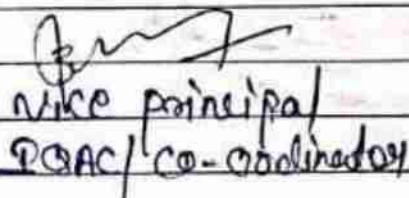 Vice principal
IQAC/ Co-ordinator